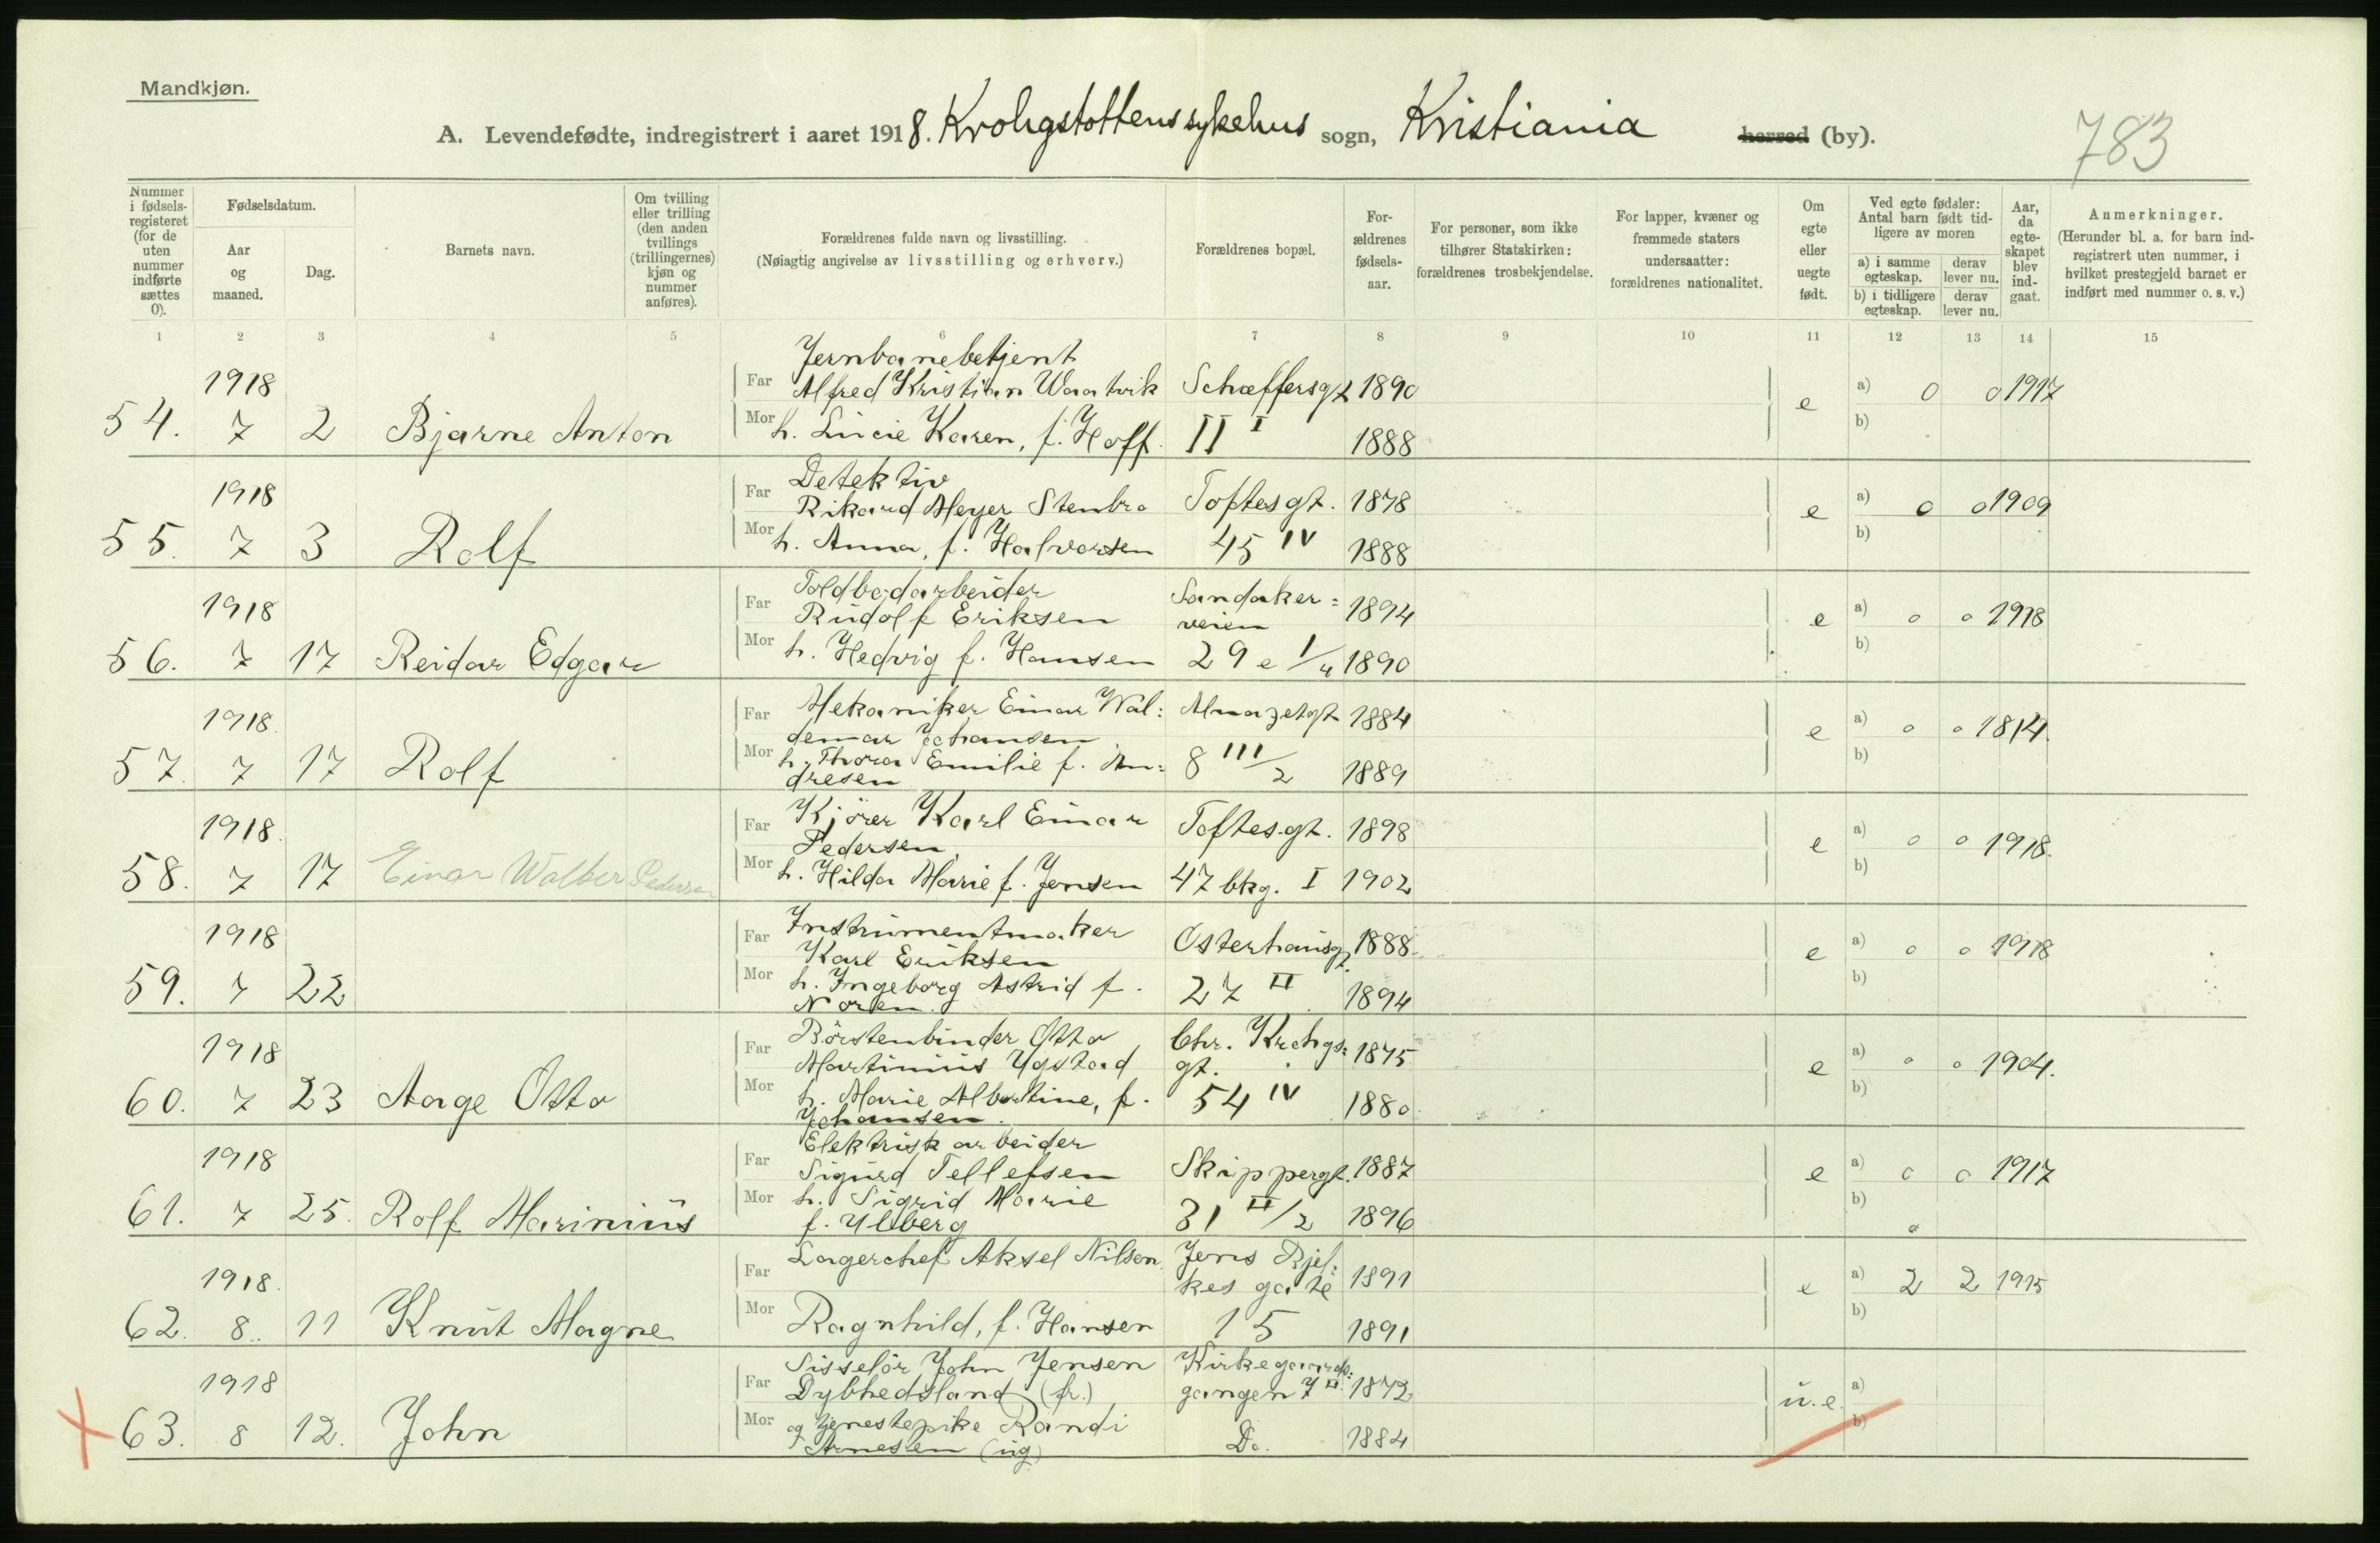 Mandkjøn.
A. Levendefødte, indregistrert i aaret 1918. Krohgstøttens sykehus sogn, Kristiania herred (by).
783
Nummer i fødselsregisteret (for de uten nummer indførte sættes 0).
Fødselsdatum.
Aar og maaned.
Dag.
Barnets navn.
Om tvilling eller trilling (den anden tvillings (trillingernes) kjøn og nummer anføres).
Forældrenes fulde navn og livsstilling.
(Nøiagtig angivelse av livsstilling og erhverv.)
Forældrenes bopæl.
Forældrenes fødselsaar.
For personer, som ikke tilhører Statskirken: forældrenes trosbekjendelse.
For lapper, kvæner og fremmede staters undersaatter: forældrenes nationalitet.
Om egte eller uegte født.
Ved egte fødsler: Antal barn født tidligere av moren
a) i samme egteskap.
derav lever nu.
b) i tidligere egteskap.
derav lever nu.
Aar, da egteskapet blev indgaat.
Anmerkninger.
(Herunder bl. a. for barn indregistrert uten nummer, i hvilket prestegjeld barnet er indført med nummer o. s. v.)
1 2 3 4 5 6 7 8 9 10 11 12 13 14 15
Jernbanebetjent
1918 Far Alfred Kristian Waatvik Schæffersgt 1890 e a) 0 0 1917
54. 7 2 Bjarne Anton Mor h. Lucie Karen, f. Hoff. 11 I 1888 b)
Detektiv
1918 Far Rikard Meyer Stenbro Toftesgt. 1878 e a) 0 0 1909
55. 7 3 Rolf Mor h. Anna, f. Halvorsen 45 IV 1888 b)
Toldbodarbeider
1918 Far Rudolf Eriksen Sandaker=veien 1894 e a) 0 0 1918
56. 7 17 Reidar Edgar Mor h. Hedvig f. Hansen 29 e I/4 1890 b)
1918 Far Mekaniker Einar Wal: Almazetgt 1884 e a) 0 0 1814.
demar Johansen
57. 7 17 Rolf Mor h. Thora Emilie f. An: 8 III/2 1889 b)
dresen
1918. Far Kjører Karl Einar Toftesgt. 1898 e a) 0 0 1918.
Pedersen,
58. 7 17 Einar Walber Pedersen Mor h. Hilda Marie f. Jensen 47 bkg. I 1902 b)
1918 Far Instrumentmaker Osterhausgt. 1888 e a) 0 0 1918
Karl Eriksen
59. 7 22 Mor h. Ingeborg Astrid f. 27 II 1894 b)
Noren.
1918 Far Børstenbinder Otto Chr. Krohgs: 1875 e a) 0 0 1904.
Martinius Ygstad gt.
60. 7 23 Aage Otto Mor h. Marie Albertine, f. 54 IV 1880 b)
Johansen.
Elektrisk arbeider
1918 Far Sigurd Tellefsen Skippergt. 1887 e a) 0 0 1917
61. 7 25. Rolf Marinius Mor h. Sigrid Marie 31 II/2 1896 b)
f. Ulberg
1918. Far Lagerchef Aksel Nilsen Jens Bjel: kes gate 1891 e a) 2 2 1915
62. 8. 11 Knut Magne Mor Ragnhild, f. Hansen 15 1891 b)
Sisselør John Jensen Kirkegaards:
1918 Far Dybhedsland (fr.) gangen 7 II 1872 u.e. a)
63. 8 12. John Mor og tjenestepike Randi Do. 1884 b)
Arnesen (ug)